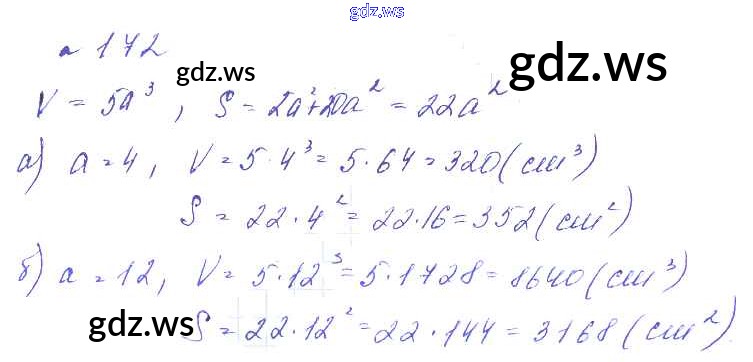 gdz.ws
№ 172
gdz.ws
gdz.ws
V = 5a³, S = 2a²+20a² = 22a²
а) a = 4, V = 5·4³ = 5·64 = 320 (см³)
S = 22·4² = 22·16 = 352 (см²)
б) a = 12, V = 5·12³ = 5·1728 = 8640 (см³)
gdz.ws
S = 22·12² = 22·144 = 3168 (см²)